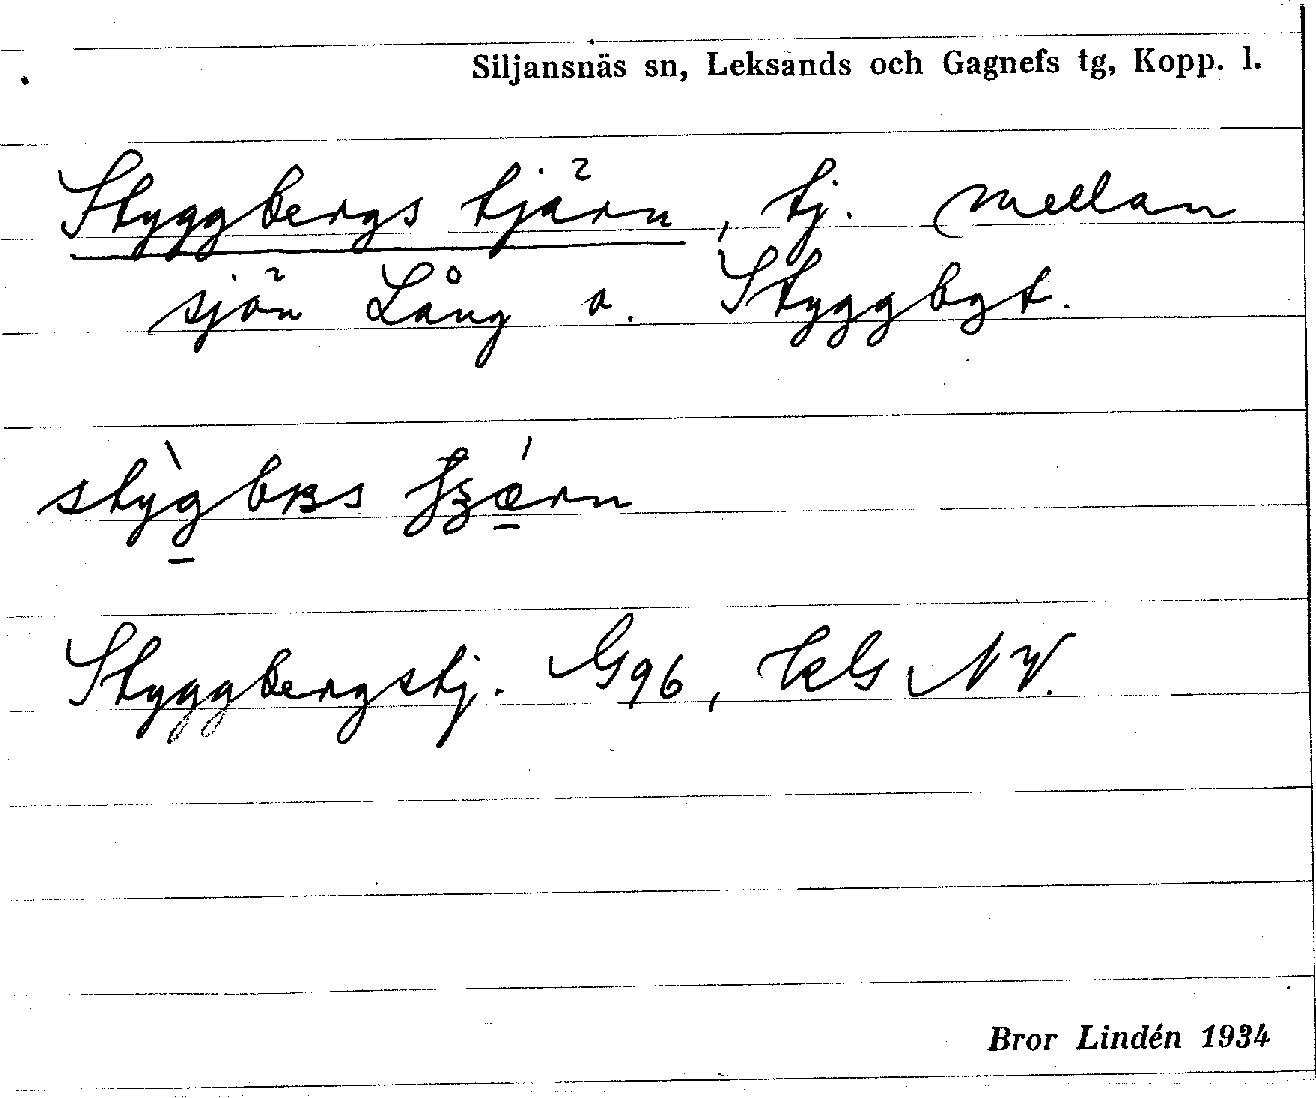 Siljansnäs sn, Leksands och Gagnefs tg, Kopp. l.
Styggbergs tjärn, tj. mellan
sjön Lång o. Styggbgt.
Styggbergstj. G96, NV.
Bror Lindén 1934